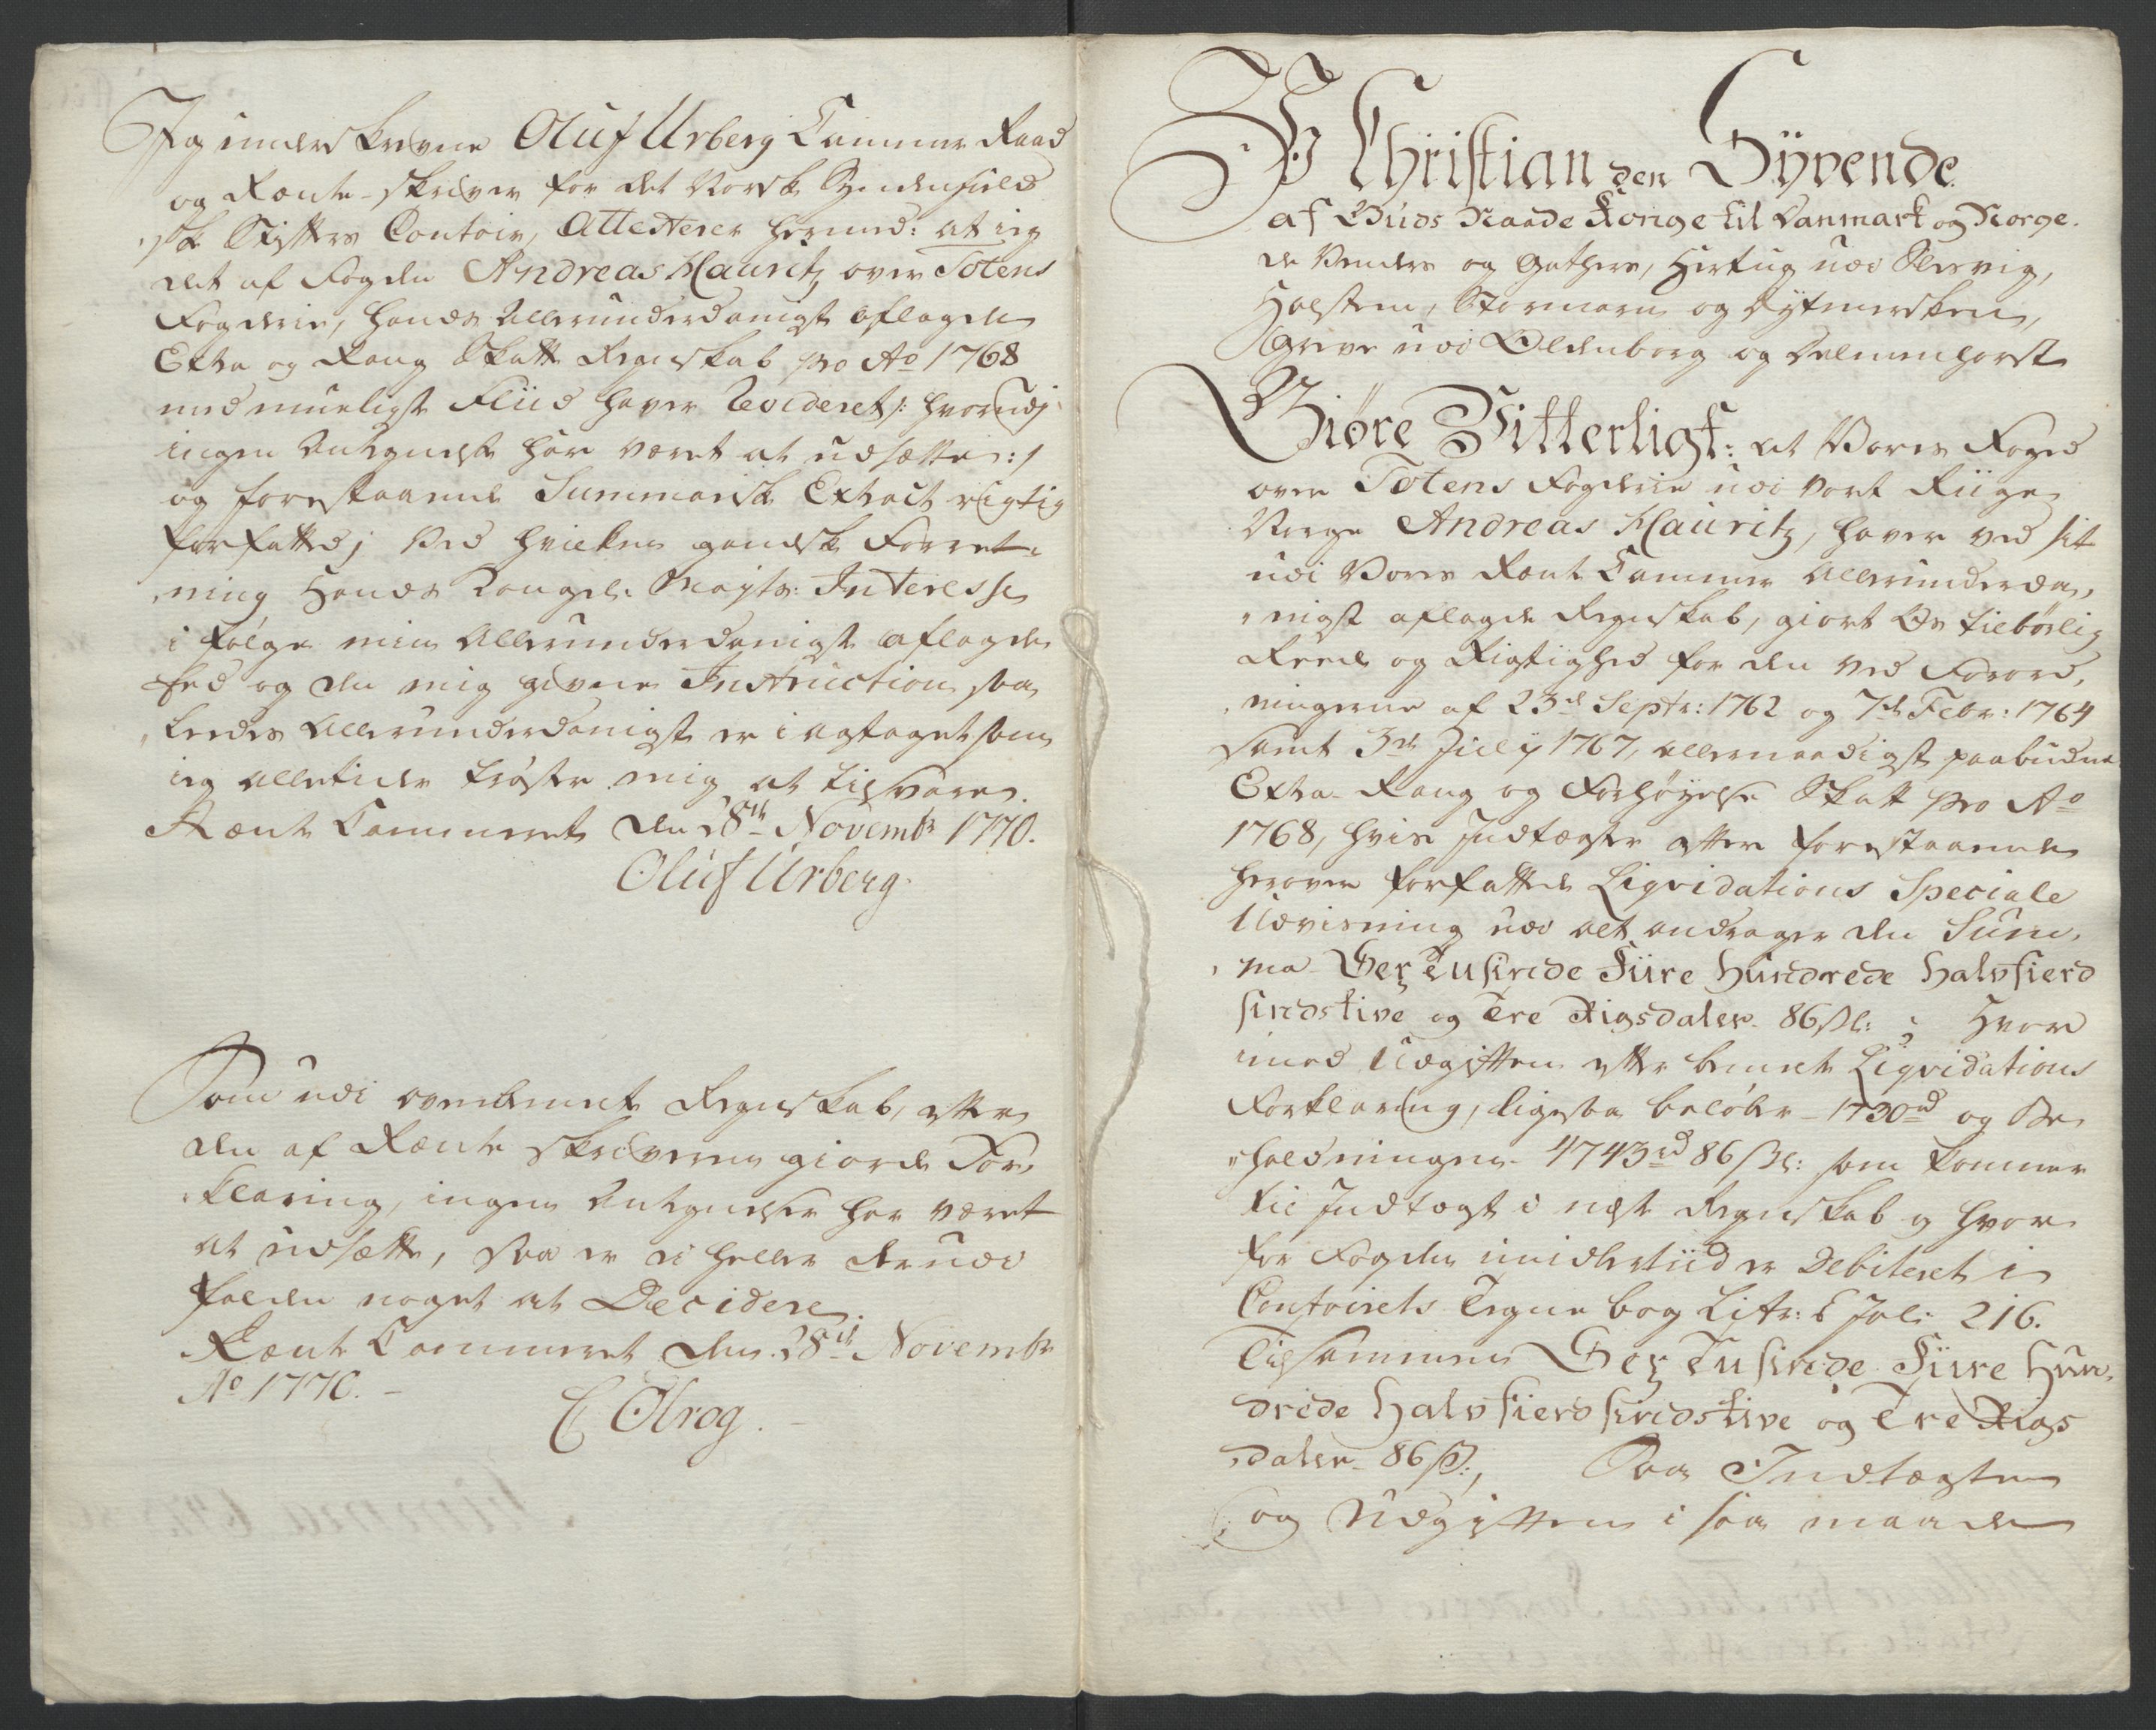 Jeg underskrevne Oluf Urberg Cammer Raad
og Rente-skriver for det Norsk Syndenfields
ske Stifters Contoir, Attesterer hermed: at ieg
det af Fogden Andreas Hauritz, over Totens
Fogderie, hands Allerunderdanigst aflagde
Extra og Rang Skatte Regnskab pro Ao 1768
med mueligste Fliid haver Revideret /: hvorudj
ingen Antegnelse har været at udsætte :/
og forestaaende Summariske Extract rigtig
forfatted; Ved hvilken gandske Forret-
ning Hands Kongel: Mayts: Interesse
i følge min Allerunderdanigst aflagde
Eed og den mig givne Instruction saa
ledes Allerunderdanigst er i agtaget som
ieg alletider trøster mig at tilsvare.
Rente Cammeret den 28de Novembr 1770.
Oluf Urberg.
Som udi ovenbemelte Regnskab, efter
den af Rente skriveren giorde For-
klaring, ingen Antegnelser har været
at udsætte, saa er ei heller derudi
falden noget at Decidere.
Rente Cammeret den 28de Novembr
Ao 1770. -
C Olrog.
Vi Christian den Syvende
af Guds Naade Konge til Danmark og Norge.
de Venders og Gothers, Hertug udi Slesvig,
Holsten, Stormarn og Dytmersken,
Greve udi Oldenborg og Delmenhorst
Giøre Vitterligt: at Vores Foged
over Totens Fogderie udi vort Riige
Norge Andreas Hauritz, haver ved sit
udi Vores Rente Cammer Allerunderda-
nigst aflagde Regnskab, giort Os tilbørlig
Reede og Rigtighed for den ved Forord-
ningerne af 23de Septr: 1762 og 7de Febr: 1764
samt 3de July 1767, allernaadigst paabudne
Extra- Rang og Forhøyelse Skatt pro Ao
1768, hvis Indtægter efter forestaaende
herover forfattede Liqvidations Speciale
Udviisning udi alt andrager den Sum-
ma Sex Tusinde Fiire Hundrede Halvfierd
sindstive og Tre Rigsdaler 86 sl: ; Hvor
imod Udgiften efter bemelte Liqvidations
Forklaring, ligesaa beløber 1730rd og Be
holdningen 4743rd 86 sl: som kommer
til Indtægt i næste Regnskab og hvor
for Fogden imidlertiid er Debiteret i
Contoirets Tegne bog Litr: E fol: 216.
Tilsammen Sex Tusinde Fiire Hun-
drede Halvfierdsindstive og Tre Rigs
daler 86 s:, Saa Indtægten
og Udgiften i saa maade